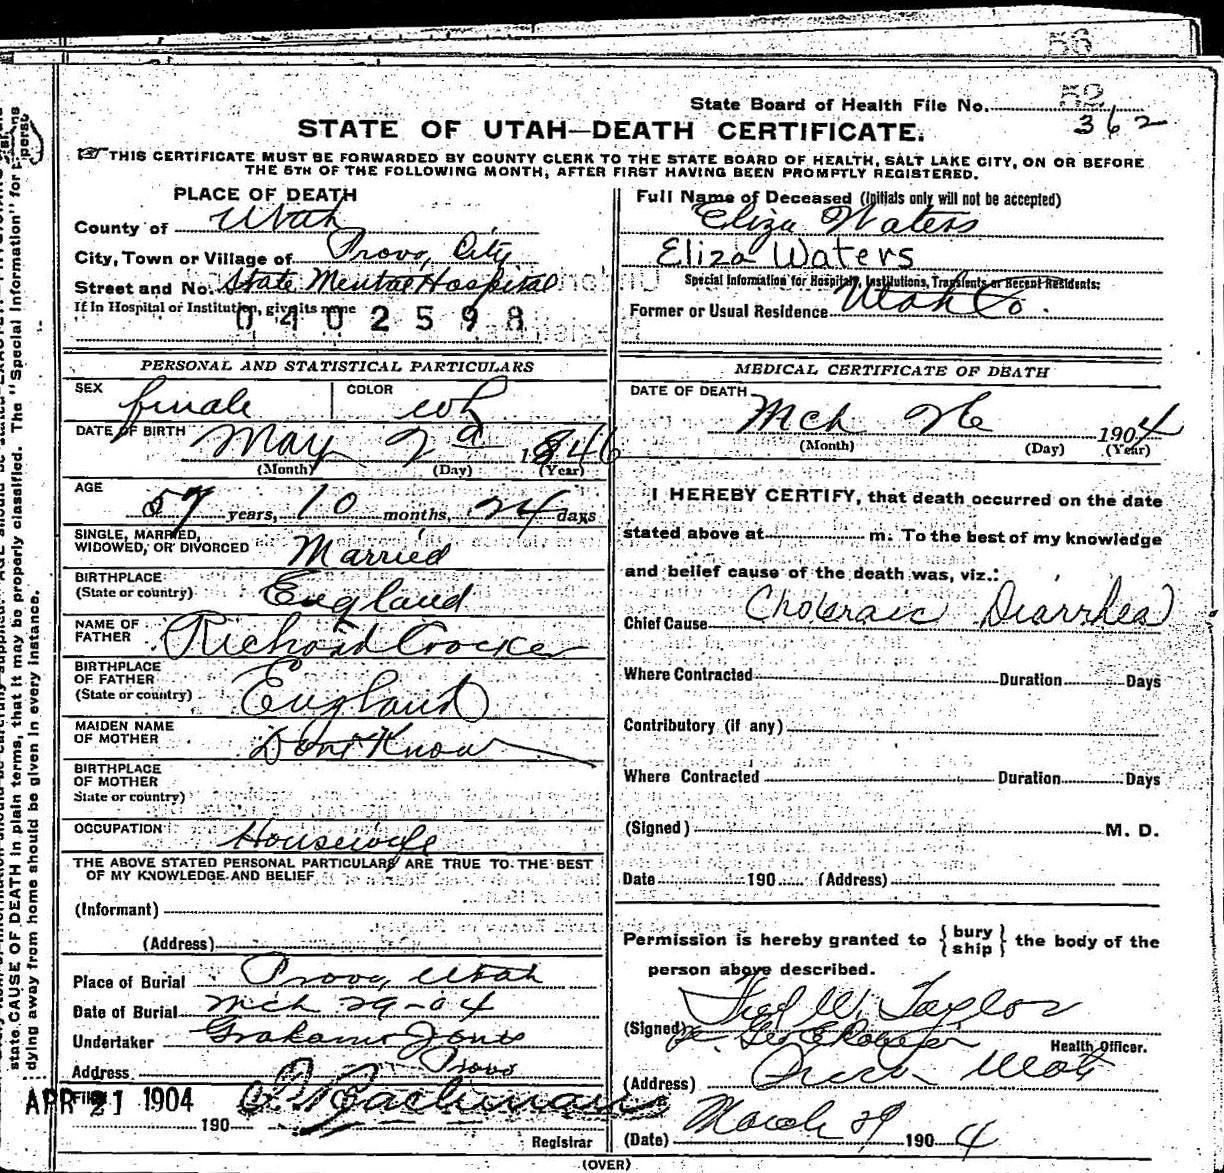 56
State Board of Health File No. 52
362
STATE OF UTAH—DEATH CERTIFICATE.
THIS CERTIFICATE MUST BE FORWARDED BY COUNTY CLERK TO THE STATE BOARD OF HEALTH, SALT LAKE CITY, ON OR BEFORE
THE 5TH OF THE FOLLOWING MONTH, AFTER FIRST HAVING BEEN PROMPTLY REGISTERED.
PLACE OF DEATH
County of Utah
City, Town or Village of Provo City
Street and No. State Mental Hospital
If in Hospital or Institution, give its name
0402598
Full Name of Deceased (Initials only will not be accepted)
Eliza Waters
Eliza Waters
Special Information for Hospitals, Institutions, Transients or Recent Residents:
Former or Usual Residence Utah Co.
PERSONAL AND STATISTICAL PARTICULARS
SEX female COLOR wh
DATE OF BIRTH May 2d 1846
(Month) (Day) (Year)
AGE
57 years, 10 months, 24 days
SINGLE, MARRIED,
WIDOWED, OR DIVORCED Married
BIRTHPLACE
(State or country) England
NAME OF
FATHER Richard Crocker
BIRTHPLACE
OF FATHER
(State or country) England
MAIDEN NAME
OF MOTHER Dont Know
BIRTHPLACE
OF MOTHER
State or country)
OCCUPATION Housewife
THE ABOVE STATED PERSONAL PARTICULARS ARE TRUE TO THE BEST
OF MY KNOWLEDGE AND BELIEF
(Informant)
(Address)
Place of Burial Provo, Utah
Date of Burial Mch 29-04
Undertaker Graham Jones
Address Provo
Filed
APR 21 1904
190
Registrar
MEDICAL CERTIFICATE OF DEATH
DATE OF DEATH
Mch 26 1904
(Month) (Day) (Year)
I HEREBY CERTIFY, that death occurred on the date
stated above at m. To the best of my knowledge
and belief cause of the death was, viz.:
Chief Cause Choleraic Diarrhea
Where Contracted Duration Days
Contributory (if any)
Where Contracted Duration Days
(Signed) M. D.
Date 190 (Address)
Permission is hereby granted to {bury ship} the body of the
person above described.
(Signed) Fred W. Taylor
Health Officer.
(Address) Provo Utah
March 29
(Date) 1904
(OVER)
state CAUSE OF DEATH in plain terms, that it may be properly classified. The "Special Information" for persons
dying away from home should be given in every instance.